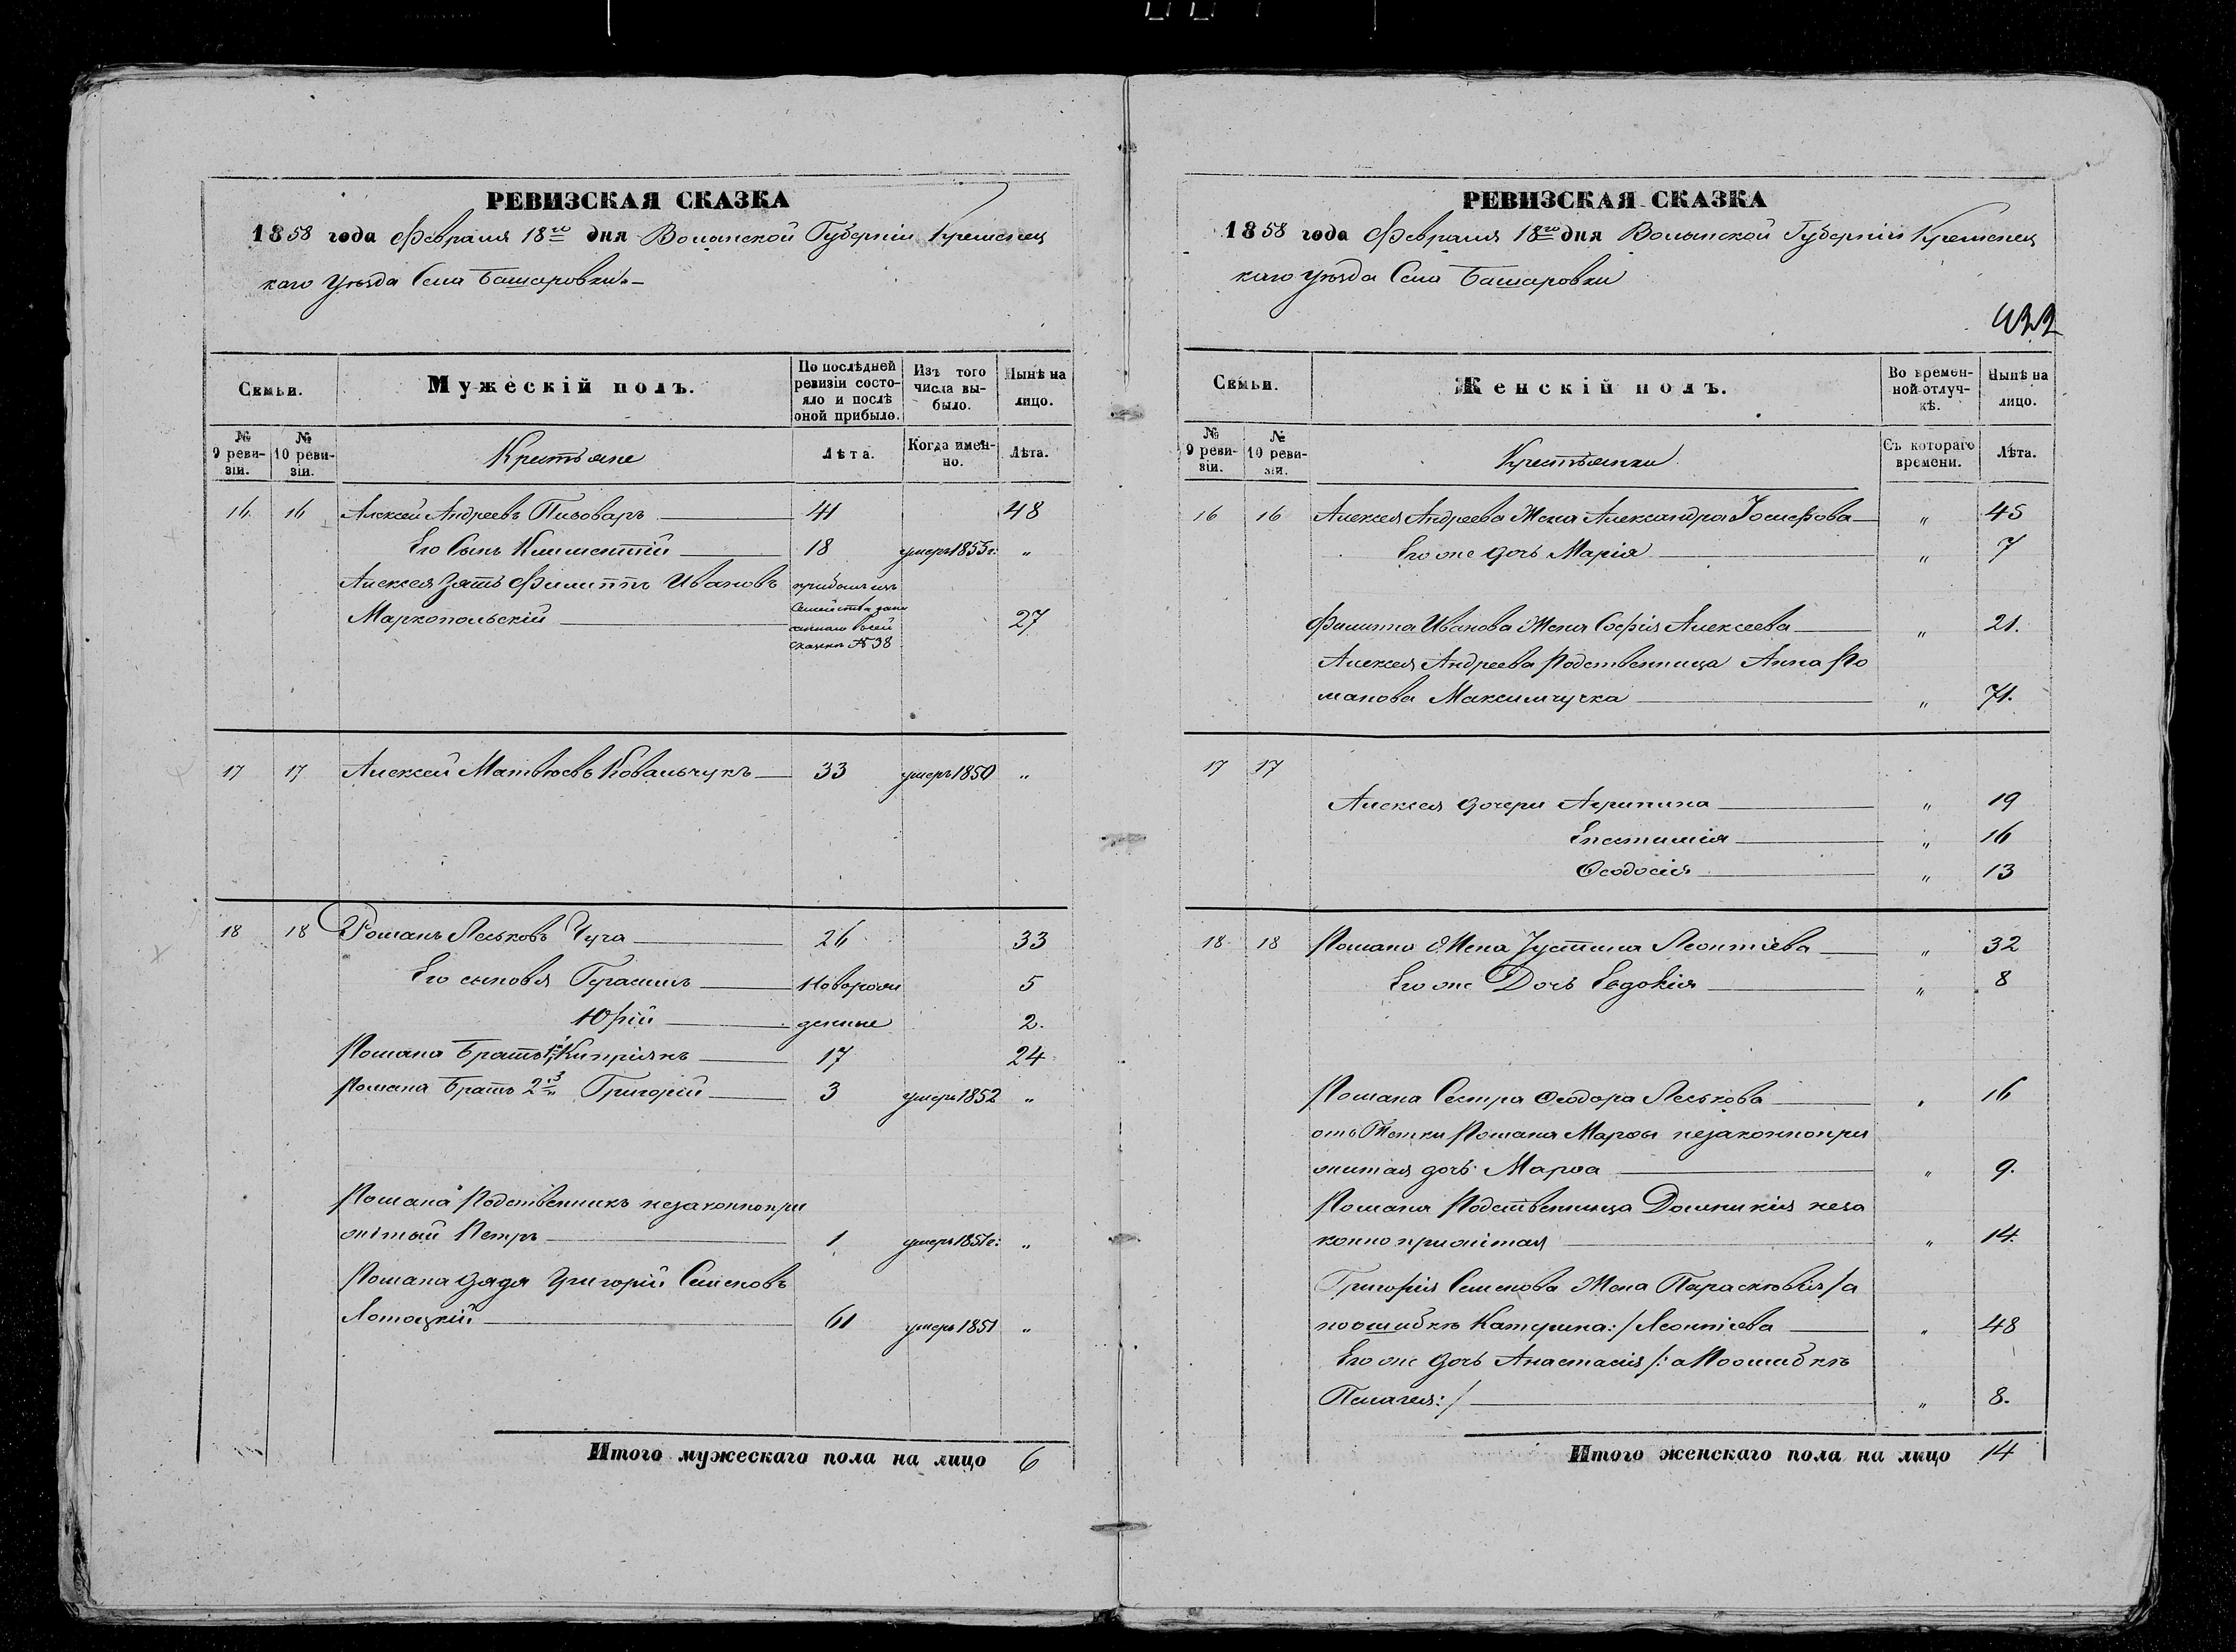 РЕВИЗСКАЯ СКАЗКА
1858 года Февраля 18го дня Волынской Губерніи Кременец
каго Уѣзда Села Башаровки
Семьи.
Мужескій полъ.
По послѣдней ревизіи состояло и послѣ оной прибыло.
Изъ того числа выбыло.
Нынѣ на лицо.
№ 9 ревизіи.
№ 10 ревизіи.
Крестьяне
Лѣта.
Когда именно.
Лѣта.
16 16 Алексей Андреевъ Пивоваръ 41 48
Его Сынъ Климентій 18 умеръ 1853 г: "
Алексея Зять Филиппъ Ивановъ прибылъ изъ
Маркопольскій Семейства 27
сказкѣ № 38
17 17 Алексей Матвѣевъ Ковальчукъ 33 умеръ 1850 "
18 18 Романъ Леськовъ Чуга 26 33
Его сыновья Герасимъ Новорож 5
Юрій денные 2.
Романа Братъ 1й Кипріянъ 17 24
Романа Братъ 2й Григорій 3 умеръ 1852 "
Романа Родственникъ незаконнопри
житый Петръ 1 умеръ 1851 г: "
Романа Дядя Григорій Семеновъ
Лотоцкій 61 умеръ 1851 "
Итого мужескаго пола на лицо 6
РЕВИЗСКАЯ СКАЗКА
1858 года Февраля 18го дня Волынской Губерніи Кременец
каго Уѣзда Села Башаровки
Семьи.
Женскій полъ.
Во временной отлучкѣ.
Нынѣ на лицо.
№ 9 ревизіи.
№ 10 ревизіи.
Крестьянки
Съ котораго времени.
Лѣта.
16 16 Алексея Андреева Жена Александра Іосифова " 45
Его же дочь Марія " 7
Филиппа Иванова Жена Софія Алексеева " 21.
Алексея Андреева Родственница Анна Ро
манова Максимчучка " 71.
17 17
Алексея дочери Агрипина " 19
Епистимія " 16
Ѳеодосія " 13
18 18 Романа Жена Іустина Леонтіева " 32
Его же Дочь Евдокія " 8
Романа Сестра Ѳеодора Леськова " 16
отъ Тетки Романа Марѳы незаконнопри
житая дочь Марѳа " 9.
Романа Родственница Доминикія неза
конно прижитая " 14.
Григорія Семенова Жена Параскевія /а
по ошибкѣ Катерина:/ Леонтіева " 48
Его же дочь Анастасія /: а По ошибкѣ
Пелагея:/ " 8.
Итого женскаго пола на лицо 14